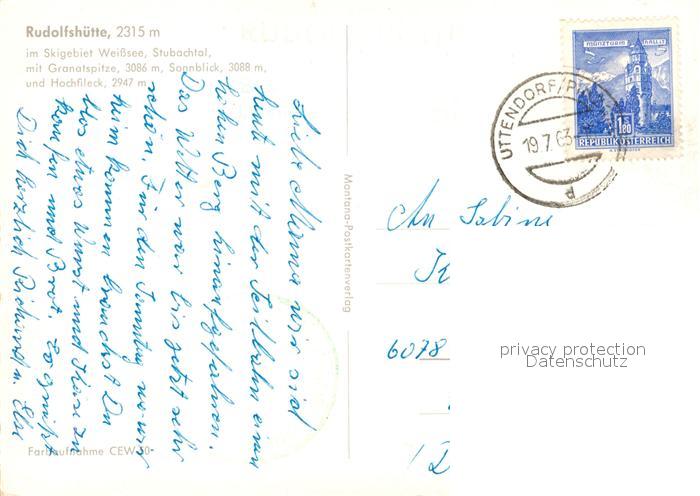 Rudolfshütte, 2315 m
im Skigebiet Weißsee, Stubachtal,
mit Granatspitze, 3086 m, Sonnblick, 3088 m,
und Hochfileck, 2947 m
Liebe Mama wir sind
heut mit der Seilbahn einen
hohen Berg hinaufgefahren.
Das Wetter war bis jetzt sehr
schön. Für den Sonntag wo wir
heim kommen brauchst Du
bloß etwas Wurst und Käse zu
kaufen und Brot. Es grüßt
Dich herzlich Richard u. Else
Farbaufnahme CEW 50
Montana-Postkartenverlag
MÜNZTURM HALL i. T.
1.80
REPUBLIK ÖSTERREICH
UTTENDORF/P
19.7.63
a
An Sabine
6078
privacy protection
Datenschutz